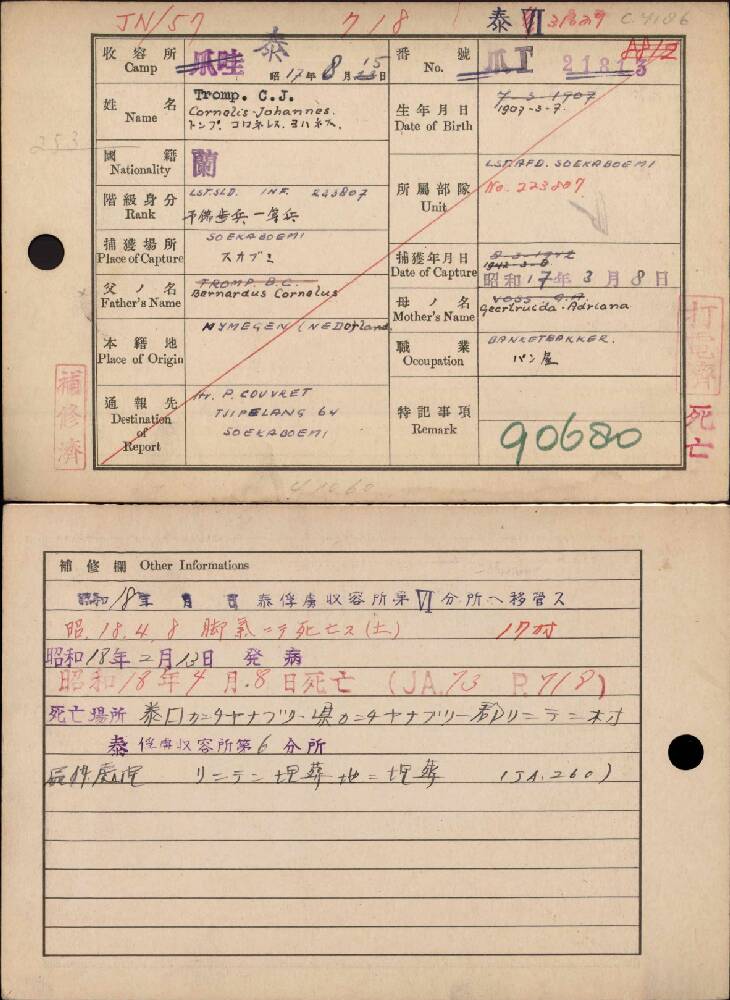 JN/57 718 泰 VI 31829 C.4186
収容所 Camp 爪哇 泰 昭17年8月15日
番號 No. 爪I 21813
姓名 Name Tromp. C.J.
Cornelis-Johannes.
トンプ. コロネレス. ヨハネス.
生年月日 Date of Birth 7-3-1907
1907-3-7.
253
國籍 Nationality 蘭
所屬部隊 Unit LST.AFD. SOEKABOEMI
No. 223807
階級身分 Rank LST.SLD. INF. 223807
捕獲場所 Place of Capture SOEKABOEMI
スカブミ
捕獲年月日 Date of Capture 8-3-1942
1942-3-8
昭和17年3月8日
父ノ名 Father's Name TROMP. B.C.
Bernardus Cornelus
母ノ名 Mother's Name VOSS G.A.
Geertruida Adriana
本籍地 Place of Origin NYMEGEN (NEDerland.
職業 Occupation BANKETBAKKER.
パン屋
通報先 Destination of Report Mr. P. COUVRET
TJIPELANG 64
SOEKABOEMI
特記事項 Remark 90680
補修濟
打電濟
死亡
41060
補修欄 Other Informations
昭和18年 月 日 泰俘虜収容所第VI分所ヘ移管ス
昭.18.4.8 脚氣ニテ死亡ス(土)
昭和18年2月13日 発病
昭和18年4月.8日死亡 (JA.73 P.718)
死亡場所 泰国カンチャナブリー県カンチヤナブリー郡リンテン村
泰俘虜収容所第6分所
リンテン埋葬地ニ埋葬 (JA.260)